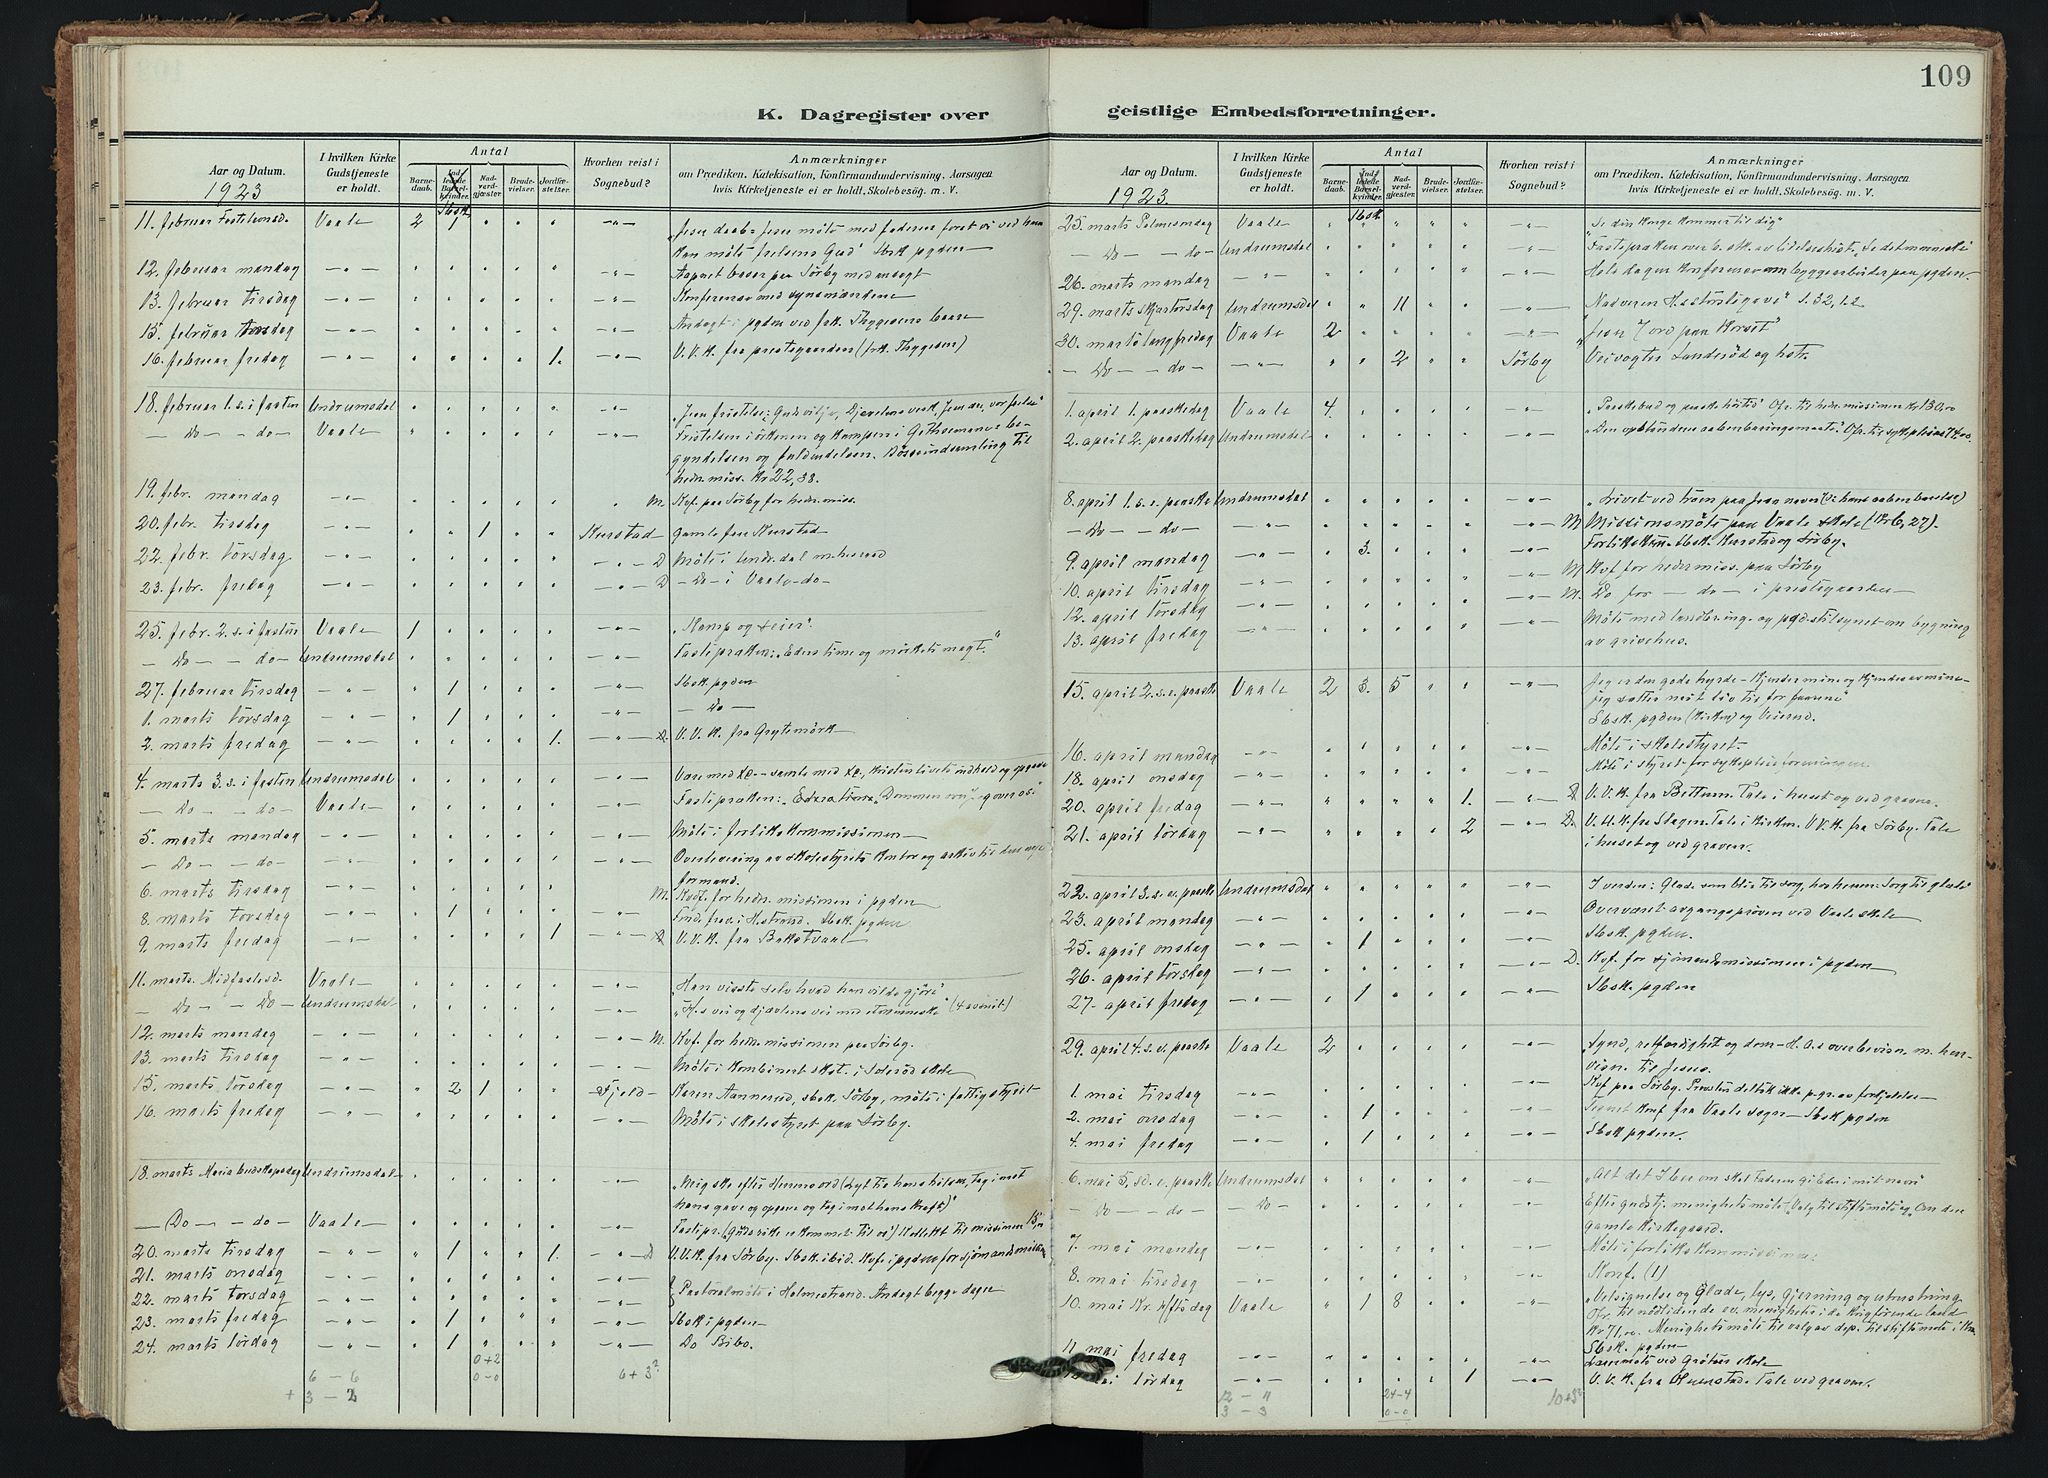 109
K. Dagregister over
geistlige Embedsforretninger.
Aar og Datum.
I hvilken Kirke Gudstjeneste er holdt.
Antal
Barnedaab.
Indledede Barselkvinder.
Nadverdgjæster.
Brudevielser.
Jordfæstelser.
Hvorhen reist i Sognebud?
Anmærkninger
om Prædiken. Katekisation, Konfirmandundervisning. Aarsagen
hvis Kirketjeneste ei er holdt. Skolebesøg. m. V.
1923
Sbsk.
11. februar Fastelavnsd. Vaale 2 1 "Jesu daab - Jesu møte med faderen
kan møte frelsens Gud" Sbsk pgden
12. februar mandag Aapnet basar paa Sørby med andagt
13. februar tirsdag Konferanse med synsmændene
15. februar torsdag Andagt i pgden ved frk. Thygesens baare
16. februar fredag 1. V.V.K. fra prestegaarden (frk. Thygesen)
18. februar 1. s. i fasten Undrumsdal
- Do - - do - Vaale Fristelsen i ørkenen og kampen i Gethsemane: be-
gyndelsen og fuldendelsen. Bøsseindsamling til
hedn. miss. Kr 22,38.
19. febr. mandag M. Kvf. paa Sørby for hedn. miss.
20. febr. tirsdag 1 Kurstad Gamle fru Kurstad
22. febr. torsdag D Møte i Undr.dal
23. febr. fredag D - Do - i Vaale - do -
25. febr. 2. s. i fasten Vaale 1 "Kamp og seier".
- Do - - do - Undrumsdal Fastepræken: "Eders time og mørkets magt."
27. februar tirsdag 1 Sbsk. pgden
1. marts torsdag 1 - Do -
2. marts fredag 1. D. V.V.K. fra Grytemørk
4. marts 3. s. i fasten Undrumsdal
- Do - - do - Vaale Fastepræken:
5. marts mandag Møte i forlikskommissionen
- Do - - do - Overlevering av skolestyrets kontor og arkiv til den nye
formand.
6. marts tirsdag M. Kvf. for hedn. missionen i pgden
8. marts torsdag 1 Sbsk. pgden
9. marts fredag 1 D V.V.K. fra Bakstvaal
11. marts. Midfastesd. Vaale "Han visste selv hvad han vilde gjøre"
- Do - - Do - Undrumsdal
12. marts mandag M. Kvf. for hedn. missionen paa Sørby.
13. marts tirsdag Møte i kombinert skst. i Solerød skole
15. marts torsdag 2 1 Fjeld Karen Aannerud, sbsk. Sørby, møte i fattigstyret
16. marts fredag Møte i skolestyret paa Sørby.
18. marts Maria budskapsdag Undrumsdal
hans gave og opgave og tag imot hans kraft)"
- Do - - do - Vaale Fastepr. (Guds rike er kommet til os") Kollekt til missionen 15,
20. marts tirsdag 1 1. D V.V.K. fra Sørby. Sbsk. ibid. Kvf. i pgden for sjømandsmission
21. marts onsdag
22. marts torsdag } Pastoralmøte i Holmestrand. Andagt begge dager
23. marts fredag 1 Sbsk i pgden
24. marts lørdag 1 Do Bibo.
6 - 6
+ 3 - 2
0+2
0-0
6+3?
Aar og Datum.
I hvilken Kirke Gudstjeneste er holdt.
Antal
Barnedaab.
Indledede Barselkvinder.
Nadverdgjæster.
Brudevielser.
Jordfæstelser.
Hvorhen reist i Sognebud?
Anmærkninger
om Prædiken. Katekisation, Konfirmandundervisning. Aarsagen
hvis Kirketjeneste ei er holdt. Skolebesøg. m. V.
1923.
Sbsk.
25. marts Palmesøndag Vaale "Se din konge kommer til dig"
- Do - - do - Undrumsdal Fastepræken over 6. stk. av lidelseshist. "Se det menneske
26. marts mandag Hele dagen konferanse om byggearbeider paa pgden.
29. marts Skjærtorsdag Undrumsdal 11
30. marts langfredag Vaale 2 "Jesu 7 ord paa korset"
- Do - - do - 2 Sørby Veivogter Sunderød og hstr.
1. april 1. paaskedag Vaale 4. "Paaskebud og paaskehøitid" Ofr. til hedn. missionen kr 130,00
2. april 2. paaskedag Undrumsdal "Den opstandnes aabenbaringsmaate". Ofr. til sykepleien 74,00
8. april 1. s. e. paaske Undrumsdal "Livet ved troen paa Jesu navn (ɔ: hans aabenbarelse)
- Do - - do - M Missionsmøte paa Vaale skole
9. april mandag 3. Forlikskom. Sbsk. Kurstad og Sørby.
10. april tirsdag M Kvf for hedn. miss. paa Sørby
12. april torsdag M. Do for - do - i prestegaarden
13. april fredag Møte med landbring- og pgd.stilsynet om bygning
av grisehus.
15. april 2. s. e. paaske Vaale 2 3. 5 Jeg er den gode hyrde - kjender mine og kjendes av mine -
jeg sætter mit liv til for faarene"
Sbsk. pgden (kirken) og Veierud.
16. april mandag Møte i skolestyret
18. april onsdag Møte i styret for sykepleieforeningen
20. april fredag 1. D V.V.K. fra Bettum. Tale i huset og ved graven.
21. april lørdag 2 D. V.V.K. fra Stagen. Tale i kirken. V.V.K. fra Sørby. Tale
i huset og ved graven.
22. april 3. s. e. paaske Undrumsdal I verden: Glæde som blir til sorg, hos herren: Sorg til glæde
23. april mandag Overværet avgangsprøven ved Vaale skole
25. april onsdag 1 Sbsk. pgden.
26. april torsdag D. Kvf. for sjømandsmissionen i pgden
27. april fredag 1 Sbsk. pgden
29. april 4. s. e. paaske Vaale 2 Synd, retfærdighet og dom - H. a.s overbevisn. m. hen-
visn. til Jesus.
1. mai tirsdag Kvf paa Sørby.
2. mai onsdag 1 konf. fra Vaale sogn - Sbsk pgden
4. mai fredag 1 Sbsk pgden.
6. mai 5. sd. e. paaske Undrumsdal "Alt det I ber om skal Faderen gi Eder i mit navn"
- Do - - do - - Do - Efter gudstj. menighetsmøte: Valg til stiftsmøte og Om den
gamle kirkegaard.
7. mai mandag Møte i forlikskommissionen
8. mai tirsdag Konf. (1)
10. mai Kr. hftsdag Vaale 1 8 "Velsignelse og Glæde, lys, gjerning og utrustning
Ofr. til nødlidende ev. menigheter i de krigførende land
Kr 71,00. Menighetsmøte til valg av dep. til stiftsmøte i Kra.
11. mai fredag Sbsk. pgden -
Barnemøte ved Grøtnes skole
mai lørdag 1 V.V.K. fra Tale ved graven.
12 - 11
3 - 3
24-4
0-0
10+3?